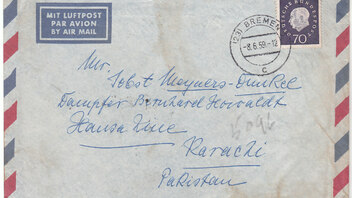 MIT LUFTPOST
PAR AVION
BY AIR MAIL
(23) BREMEN
-8.6.59.-12
c
DEUTSCHE BUNDESPOST
70
Mr.
Jobst Meyners-Dunkel
Dampfer Bernhard Howaldt
Hansa Line
Karachi
Pakistan